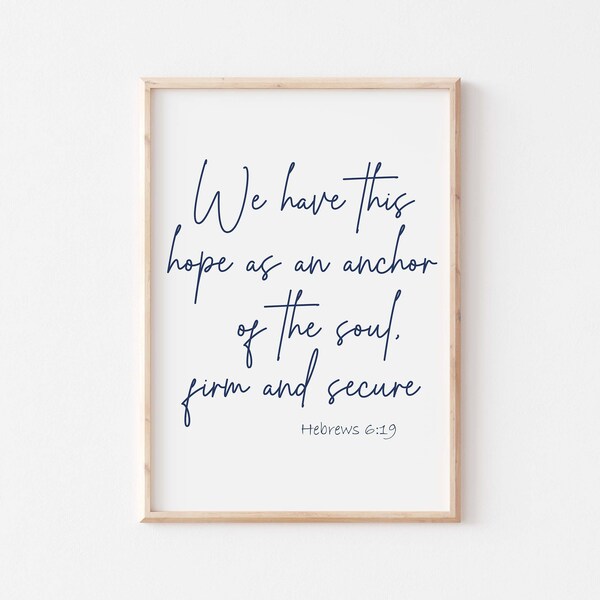 We have this
hope as an anchor
of the soul,
firm and secure
Hebrews 6:19